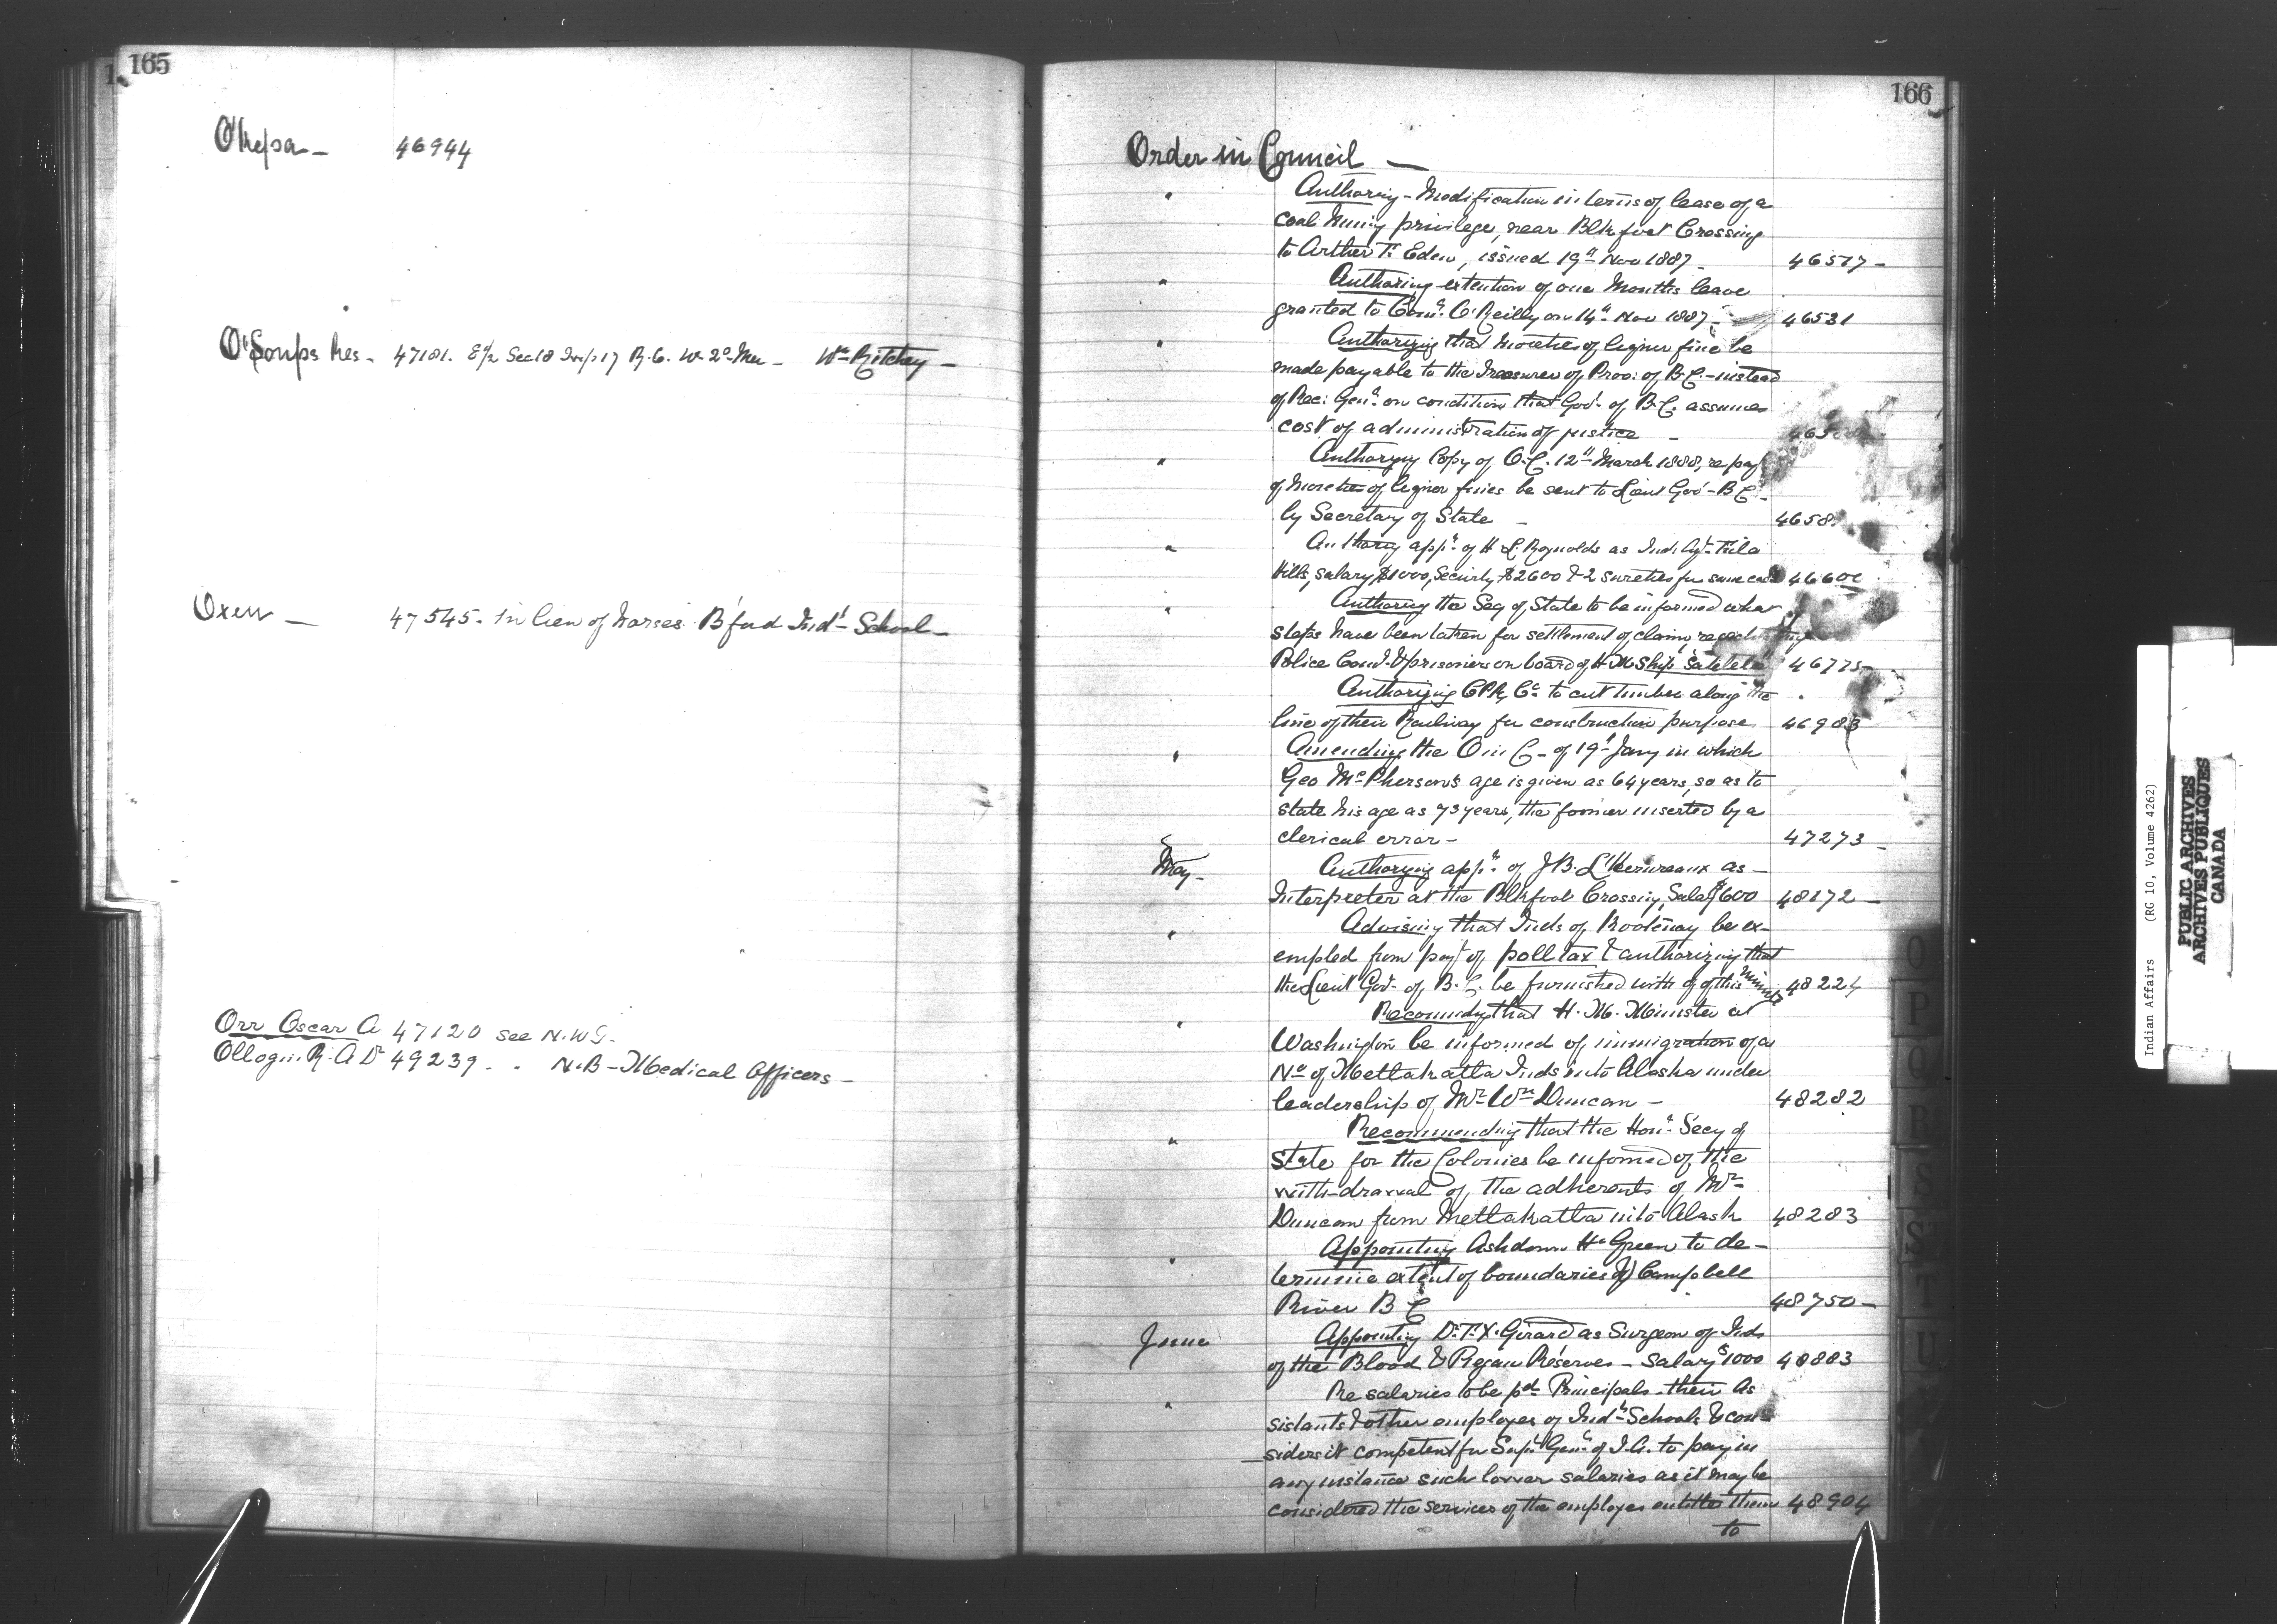 165
46944
O'Soups Res - 47181. E½ Sec 18 Twp 17 R.6. W. 2d Mer - Wm Ritchey -
Oxen - 47545 - In lieu of horses B'ford Ind'l School -
Orr Oscar A 47120 see N.W.T.
R. A Dr 49239 . . N.B - Medical Officers -
166
Order in Council -
" Authoring - Modification in terms of lease of a
coal mining privilege, near Blkfoot Crossing
to Arther T. Eden, issued 19th Nov 1887 - 46517 -
" Authoring extention of one Months leave
granted to Comr. O'Reilly on 14th Nov 1887 - 46531
" Authorizing that moieties of liquor fine be
made payable to the Treasurer of Prov: of B.C. - instead
of Rec: Genl. on condition that Govt. of B.C. assumes
cost of administration of justice -
" Authorizing Copy of O.C. 12th March 1888, re payt
of moieties of liquor fines be sent to Lieut Gov - B C -
by Secretary of State - 4658
" Authorig appt. of H L. Reynolds as Ind. Agt. File
Hills, salary, $1000, Security $2600 & 2 sureties for same each 46600
" Authorizg the Secy of State to be informed what
steps have been taken for settlement of claim
Police Const. & prisoniers on board of H M Ship "Satelete" 46775 -
Authorizing CPR Co. to cut timber along the
line of their Railway for construction purpose 46983
" Amending the O in C - of 19th Jany in which
Geo McPherson's age is given as 64 years, so as to
state his age as 73 years, the former inserted by a
clerical error - 47273 -
May - Authorizing appt. of J B. L'Heureaux as -
Interpreter at the Blkfoot Crossing, Salary $600 48172 -
" Advising that Inds of Kootenay be ex-
empted from payt of poll tax & authorizing that
the Lieut Gov. of B.C. be furnished with of this Minute 48224
" Recommdg that H. M. Minister at
Washington be informed of immigration of a
No of Metlakatla Inds into Alaska under
leadership of Mr Wm Duncan - 48282
" Recommending that the Hon. Secy of
State for the Colonies be informed of the
with-drawal of the adherents of Mr
Duncan from Metlakatla into Alask 48283
" Appointing Ashdown H. Green to de-
termine extent of boundaries of Campbell
River B C 48750 -
June Appointing Dr. F. X. Girard as Surgeon of Inds
of the Blood & Piegan Reserves - Salary $1000 48883
" Re salaries to be pd Principals - their As
sistants & other employes of Indl Schools & con-
siders it competent for Supt. Genl. of I.A. to pay in
any instance such lower salaries as it may be
considered the services of the employes entitles them 48904
to
O
P
Q
R
S
S
T
U
Indian Affairs (RG 10, Volume 4262)
PUBLIC ARCHIVES
ARCHIVES PUBLIQUES
CANADA